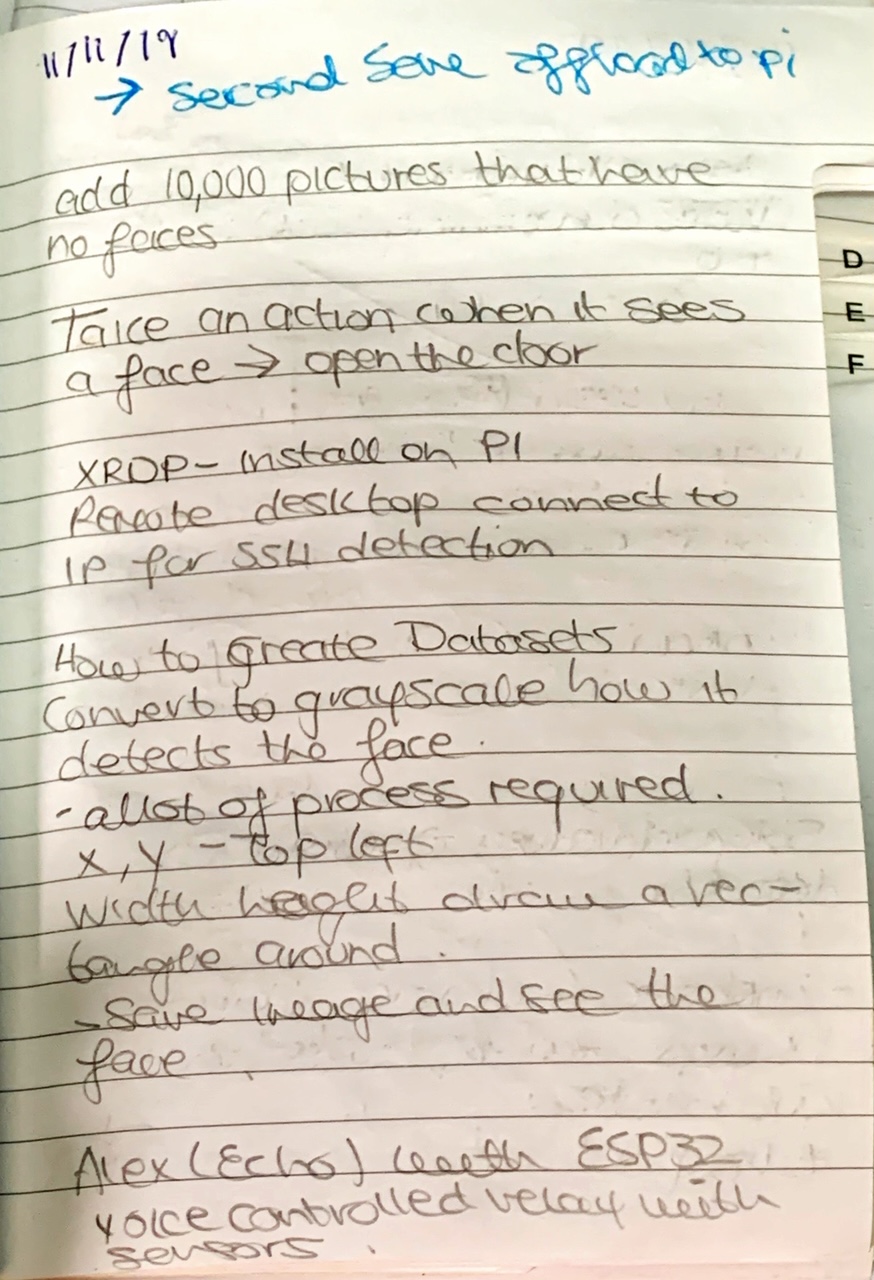 11/11/19
→ Second Save offload to pi
add 10,000 pictures that have
no faces
Take an action when it sees
a face → open the door
D
E
F
XRDP - install on PI
Remote desktop connect to
IP for SSH detection
How to Create Datasets
Convert to grayscale how it
detects the face.
- allot of process required.
X, Y - top left
Width height draw a rec-
tangle around.
- Save image and see the
face
Alex (Echo) with ESP32
voice controlled relay with
sensors.